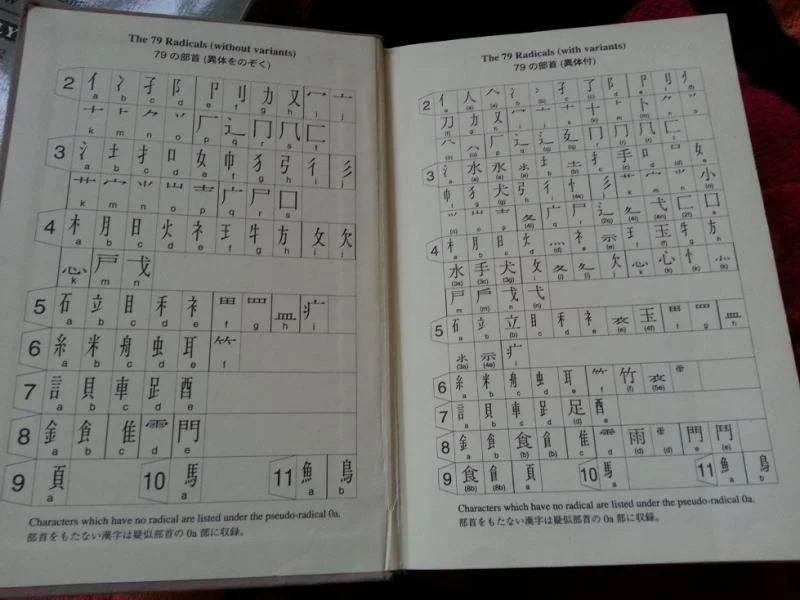 The 79 Radicals (without variants)
79 の部首 (異体をのぞく)
2 亻 冫 孑 阝 卩 刂 力 又 冖 亠
a b c d e f g h i j
十 ト 𠂉 丷 厂 辶 冂 几 匚
k m n o p q r s t
3 氵 土 扌 口 女 巾 犭 弓 彳 彡
a b c d e f g h i j
艹 宀 ⺌ 山 耂 广 尸 囗
k m n o p q r s
4 木 月 日 火 礻 王 牜 方 攵 欠
a b c d e f g h i j
心 戸 戈
k m n
5 石 立 目 禾 衤 田 罒 皿 疒
a b c d e f g h i
6 糹 米 舟 虫 耳 ⺮
a b c d e f
7 訁 貝 車 𧾷 酉
a b c d e
8 釒 飠 隹 ⻗ 門
a b c d e
9 頁 10 馬 11 魚 鳥
a a a b
Characters which have no radical are listed under the pseudo-radical 0a.
部首をもたない漢字は疑似部首の 0a 部に収録。
The 79 Radicals (with variants)
79 の部首 (異体付)
2 亻 人 𠆢 冫
刀 力 又 冖 亠 十 ト 𠂉
厂 辶 廴 冂 几 匚
3 氵 水 土 扌 手 口 女
巾 犭 犬 弓 彳 忄 彡 艹 宀 小
广 尸 辶 夂 弋 匚 囗
4 木 月 日 火 灬 礻 示 王 玉 牜 方
水 手 犬 攵 夂 欠 心 忄
戸 戶 戈 弋
5 石 立 目 禾 衤 玉 田 罒 皿
示 疒
6 糹 米 舟 虫 耳 ⺮ 竹
7 訁 貝 車 𧾷 足 酉
a b c d (d) e
8 釒 飠 食 隹 ⻗ 雨 門 鬥
9 食 頁 10 馬 11 魚 鳥
(8b) (8b) a a a b
Characters which have no radical are listed under the pseudo-radical 0a.
部首をもたない漢字は疑似部首の 0a 部に収録。